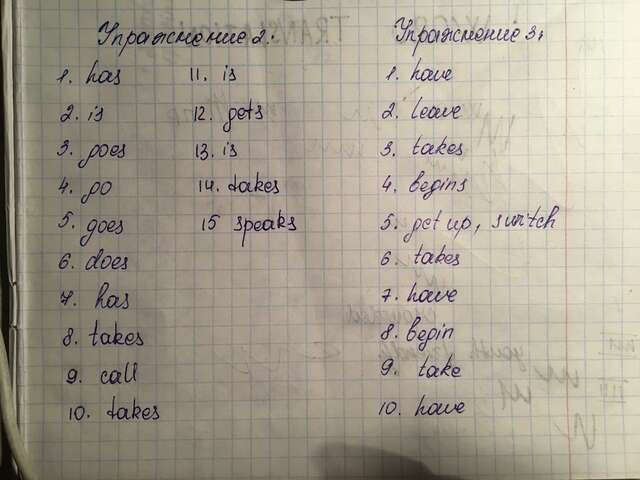 Упражнение 2.
1. has
2. is
3. goes
4. go
5. goes
6. does
7. has
8. takes
9. call
10. takes
11. is
12. gets
13. is
14. takes
15 speaks
Упражнение 3.
1. have
2. leave
3. takes
4. begins
5. get up, switch
6. takes
7. have
8. begin
9. take
10. have